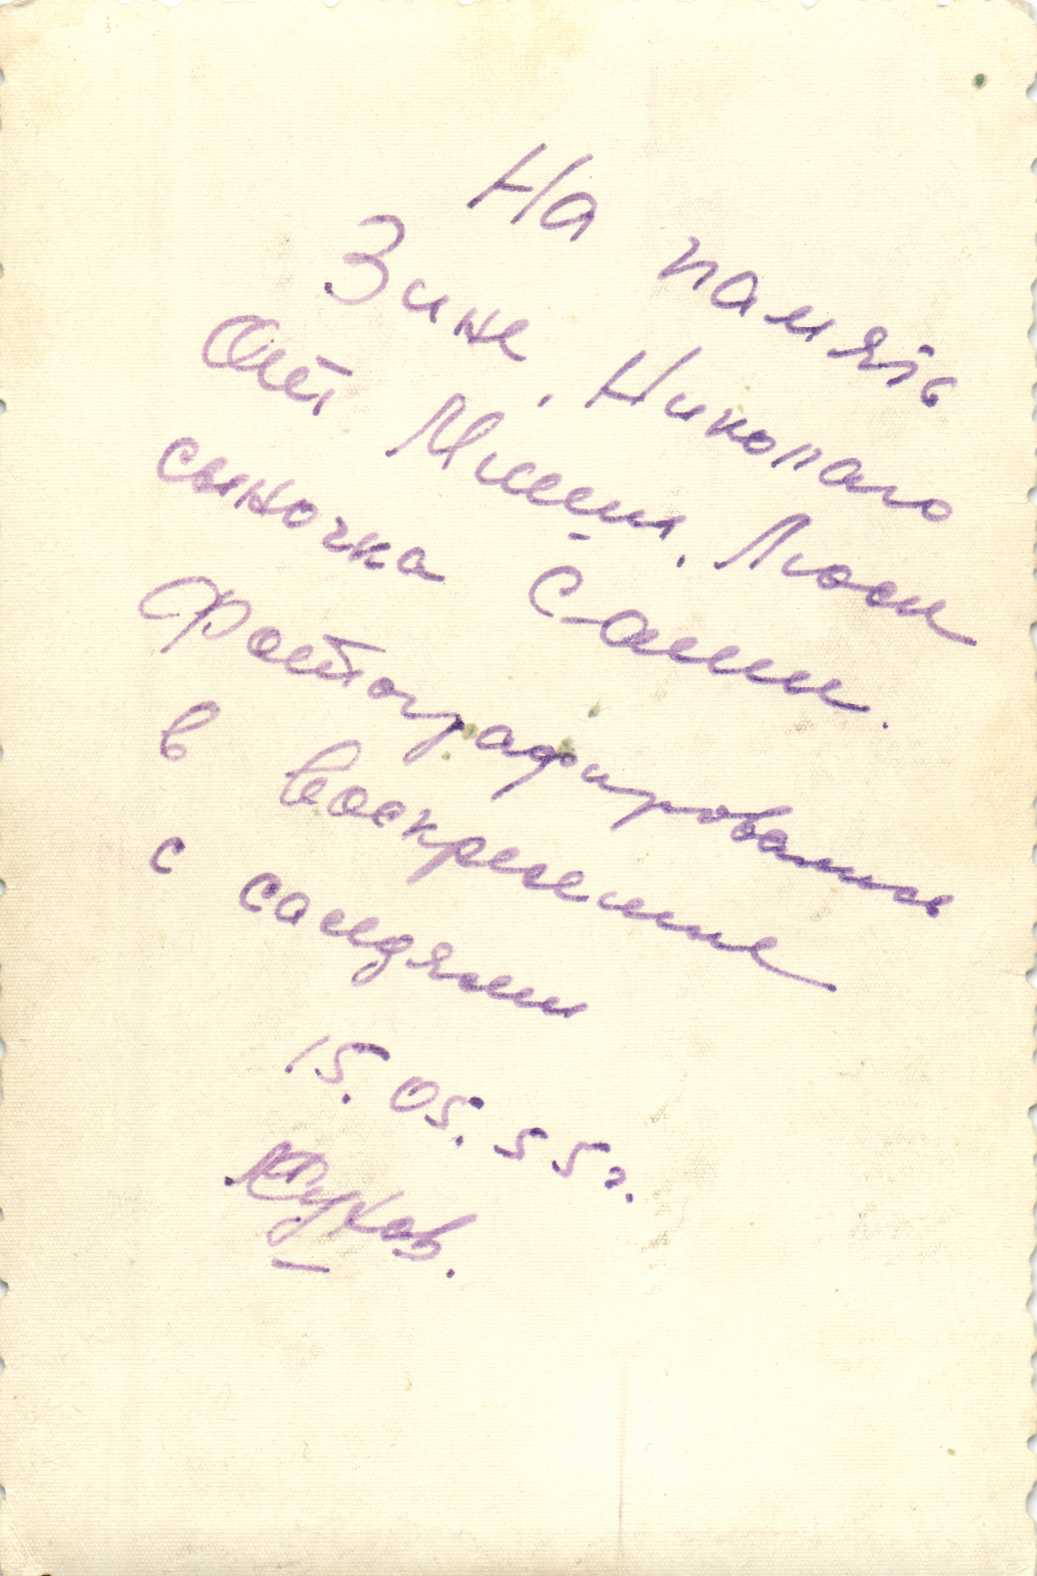 На память
Зине, Николаю
От Миши, Люси
сыночка Саши.
Фотографировались
в воскресение
с соседями
15.05.55г.